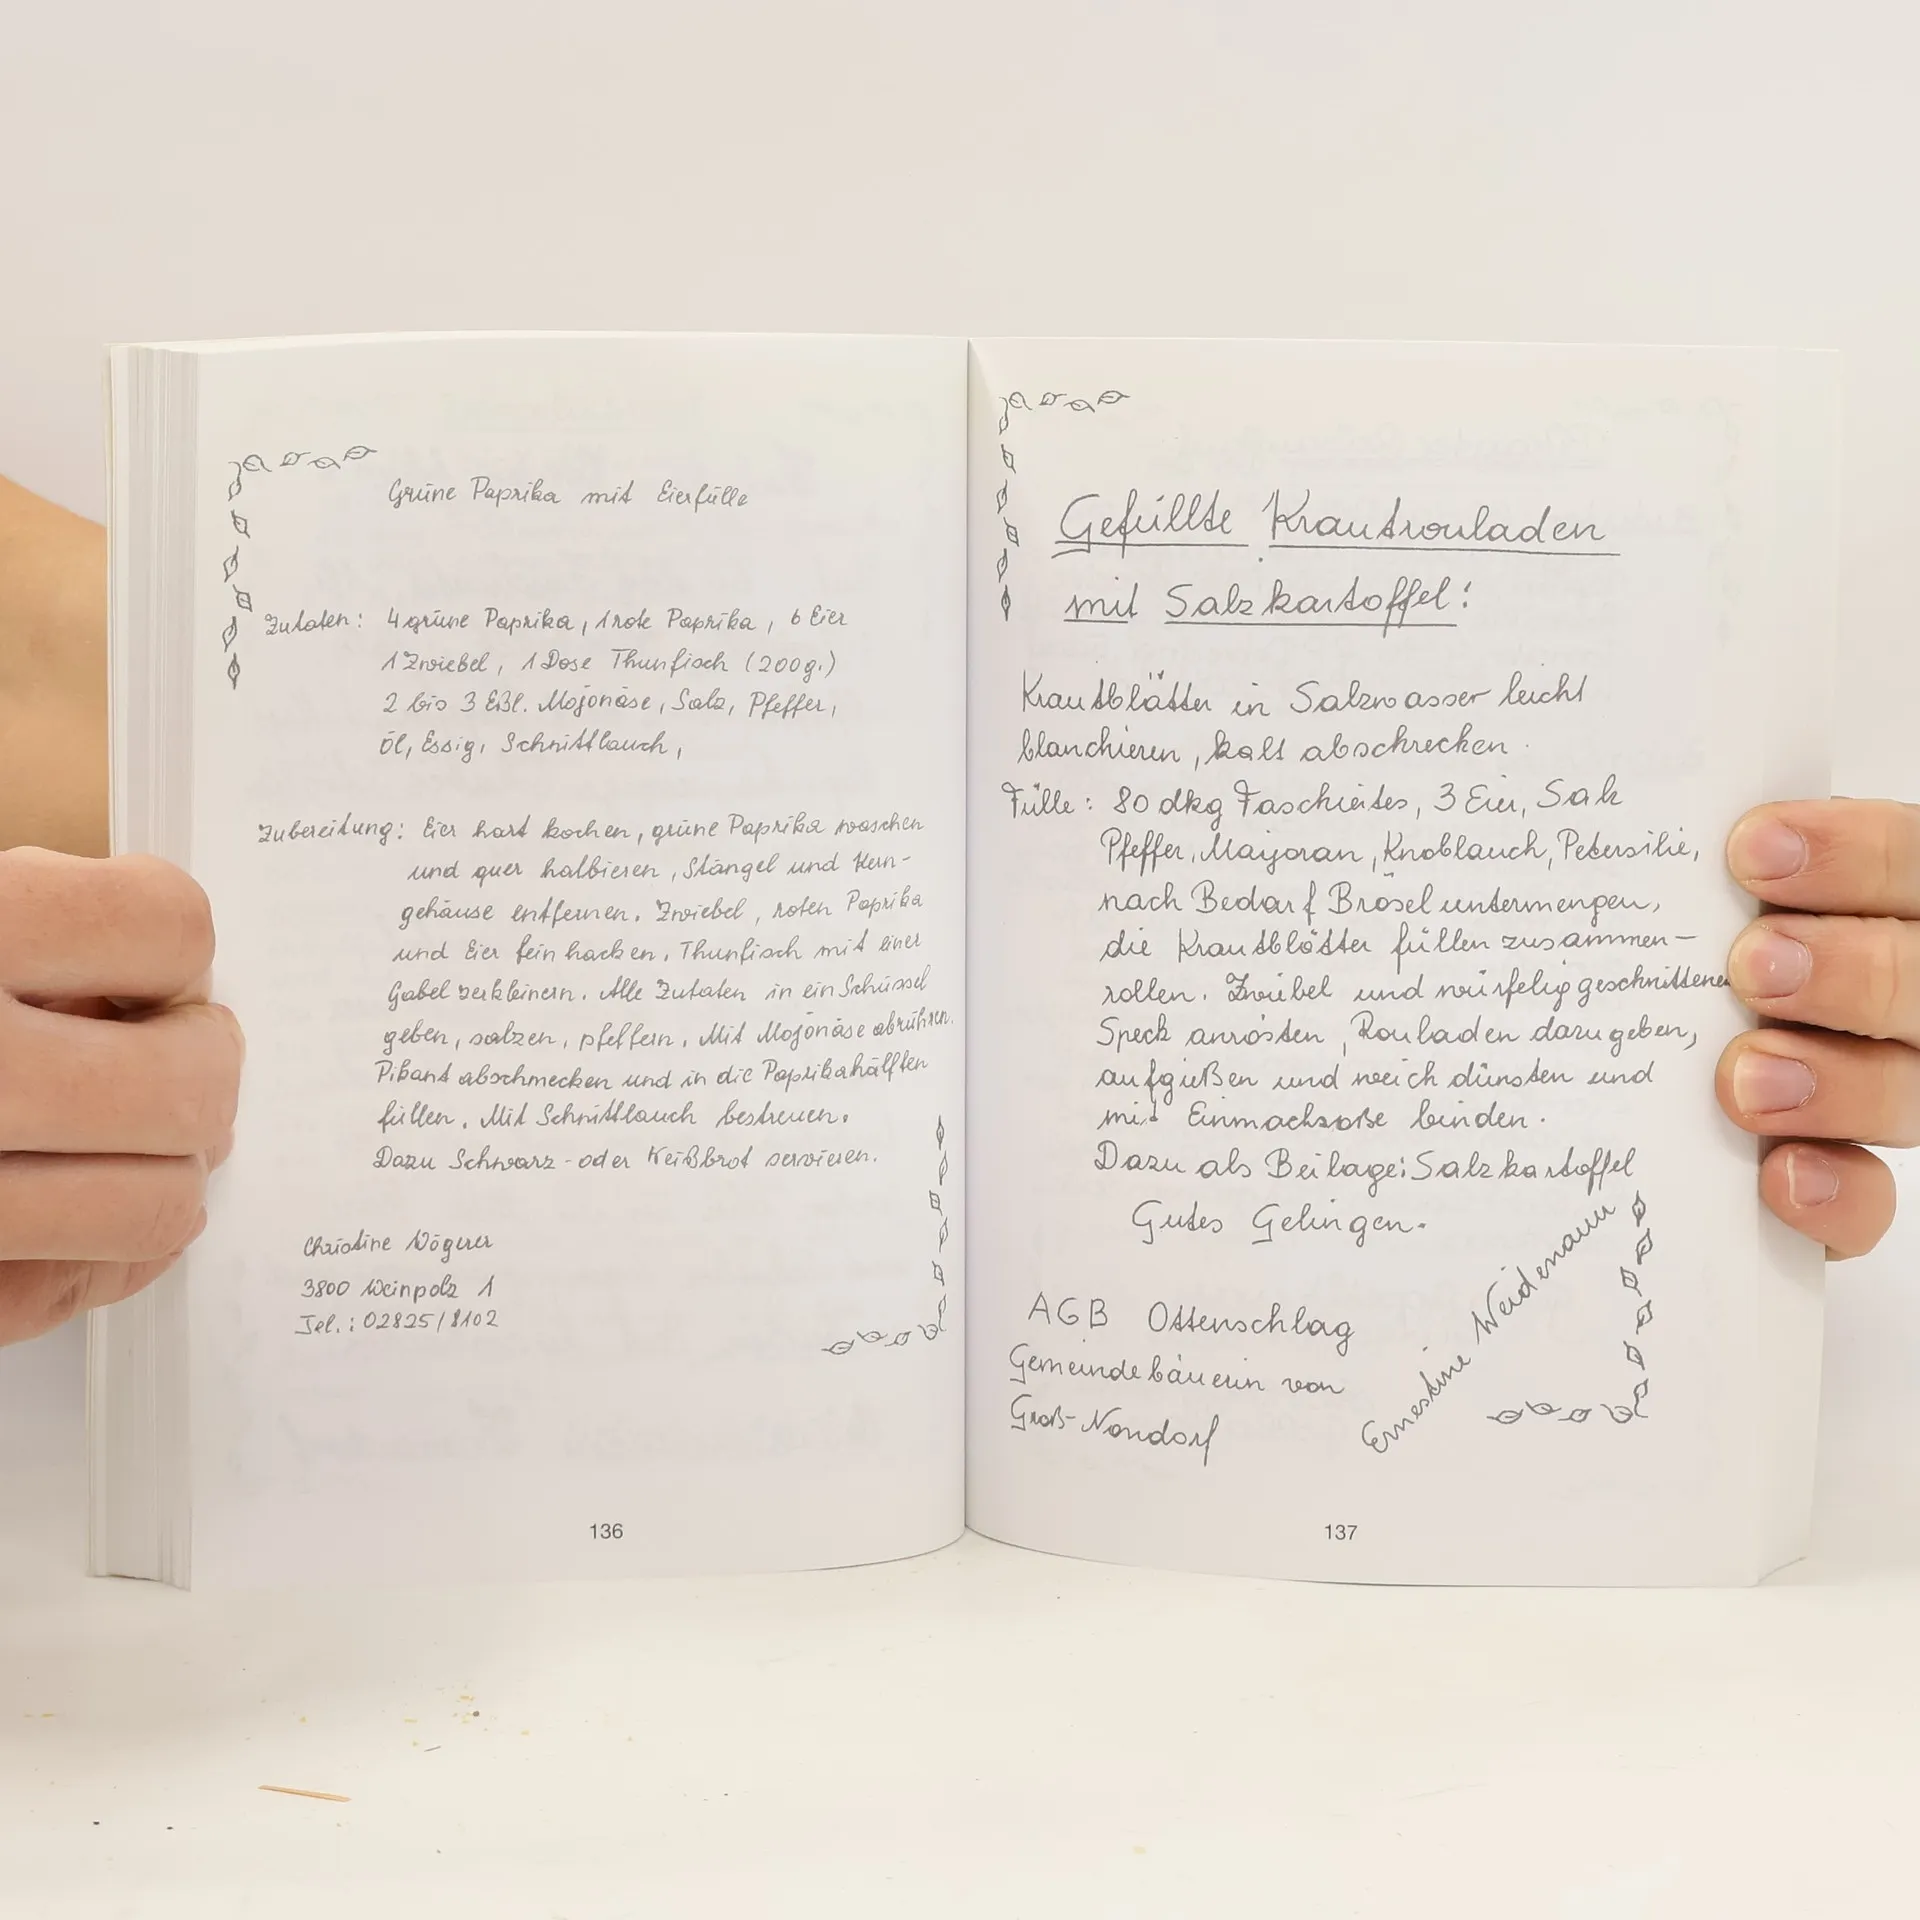 Grüne Paprika mit Eierfülle
Zutaten: 4 grüne Paprika, 1 rote Paprika, 6 Eier
1 Zwiebel, 1 Dose Thunfisch (200g.)
2 bis 3 Eßl. Majonäse, Salz, Pfeffer,
Öl, Essig, Schnittlauch,
Zubereitung: Eier hart kochen, grüne Paprika waschen
und quer halbieren, Stängel und Kern-
gehäuse entfernen. Zwiebel, roten Paprika
und Eier fein hacken. Thunfisch mit einer
Gabel zerkleinern. Alle Zutaten in ein Schüssel
geben, salzen, pfeffern. Mit Majonäse abrühren.
Pikant abschmecken und in die Paprikahälften
füllen. Mit Schnittlauch bestreuen.
Dazu Schwarz- oder Weißbrot servieren.
Christine Wögerer
3800 Weinpolz 1
Tel.: 02825/8102
136
Gefüllte Krautrouladen
mit Salzkartoffel!
Krautblätter in Salzwasser leicht
blanchieren, kalt abschrecken.
Fülle: 80 dkg Faschiertes, 3 Eier, Salz
Pfeffer, Mayoran, Knoblauch, Petersilie,
nach Bedarf Brösel untermengen,
die Krautblätter füllen zusammen-
rollen. Zwiebel und würfelig geschnittenen
Speck anrösten, Rouladen dazugeben,
aufgießen und weich dünsten und
mit Einmachsoße binden.
Dazu als Beilage: Salzkartoffel
Gutes Gelingen.
AGB Ottenschlag
Gemeindebäuerin von
Groß-Nondorf
Ernestine Weidenauer
137